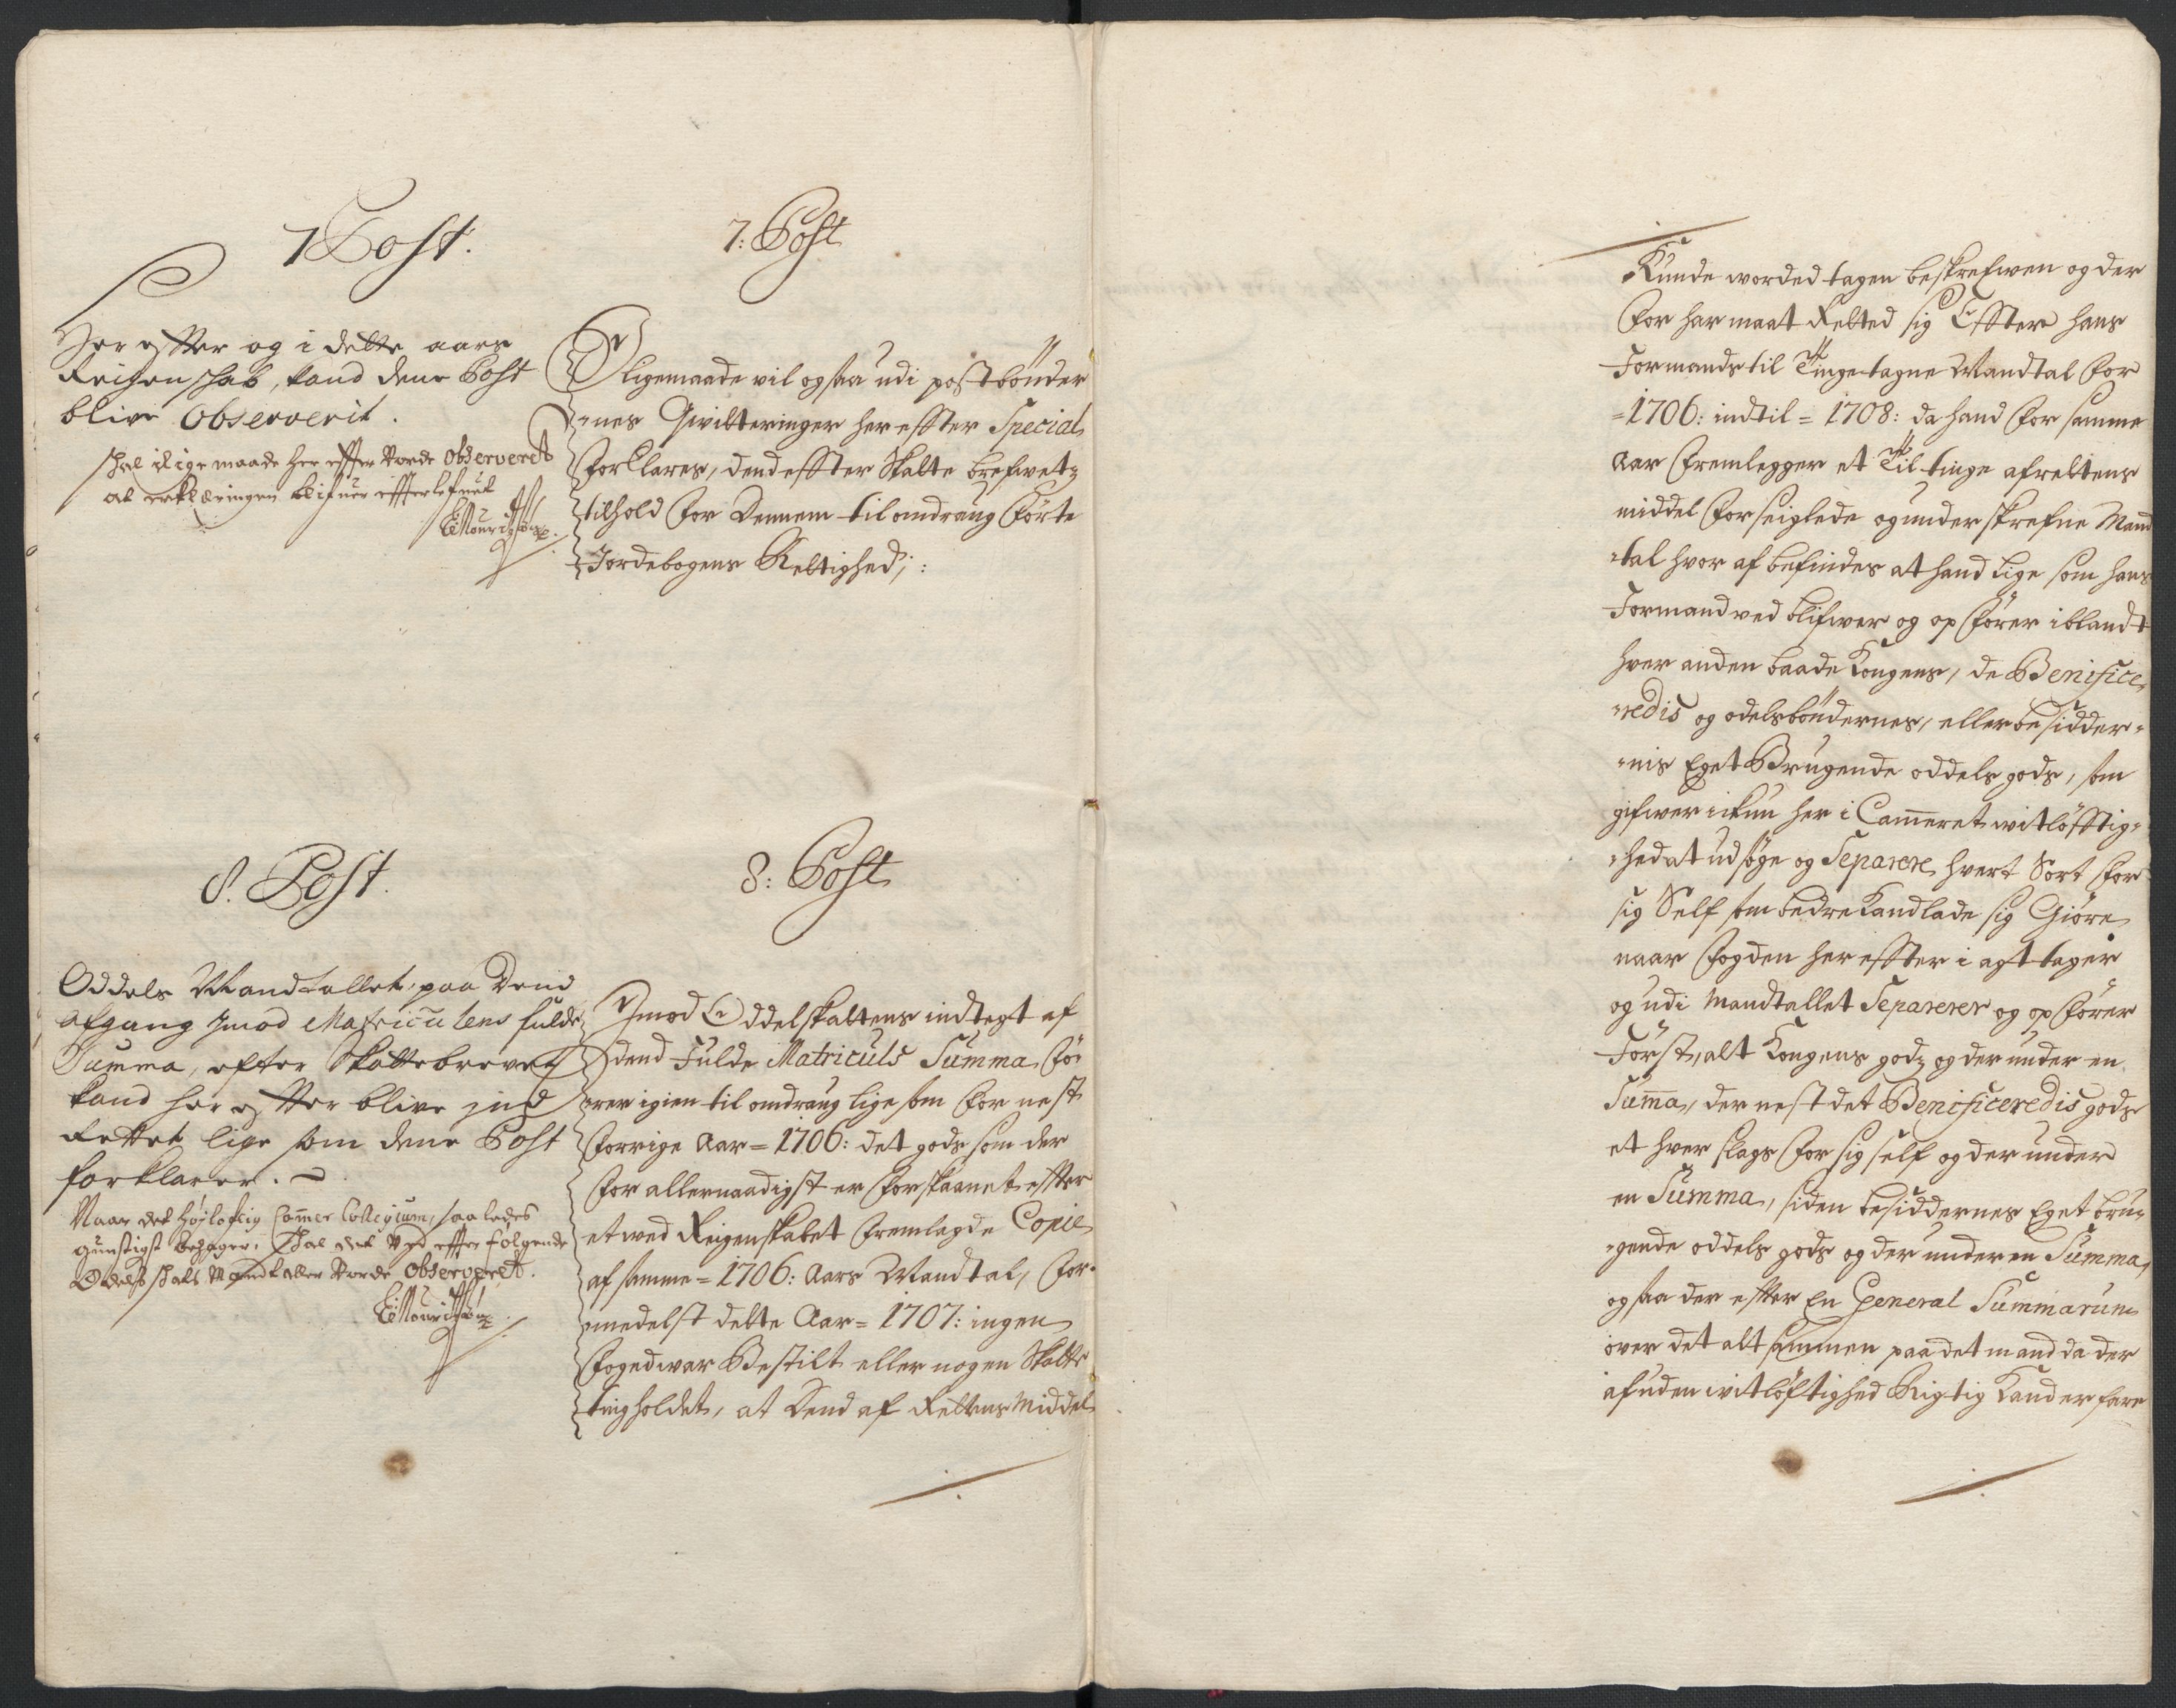 7 Post.
Her efter og i dette aars
Reigenschab, kand denne Post
blive observerit.
schal i lige maade her effter vorde observeret
at erklæringen blifuer effterlefuet
7: Post
I ligemaade vil og saa udi postbönder
-nes Qvitteringer her effter Special
forklares, dend effter Skatte brefwetz
tilhold for dennem til omdraug förte
Jordebogens Rettighed;:
8. Post.
Oddels Mandtallet paa dend
afgang imod Matriculens fulde
Summa, efter Skattebrevet
kand her efter blive ind
rettet lige som denne Post
forklarer.
Naar det höjloflig Cammer Collegium, saaledes
gunstigst behager, schal det ved effter fölgende
Odels schatt Mandtaller vorde observeret.
8: Post
Imod Oddelskattens indtegt af
dend Fulde Matriculs Summa för
-rer igien til omdraug lige som for nest
forrige Aar = 1706: det gods som der
for allernaadigst er forskaanet effter
et wed Reigenskabet fremlagde Copie
af samme = 1706: Aars Mandtal, for-
-medelst dette Aar = 1707: ingen
foged war Bestilt eller nogen Skatte
ting holdet, at dend af Rettens Middel
Kunde worded tagen beskrefwen og der
for har maat Retted sig Effter hans
Formands til Tinge tagne Mandtal for
=1706: indtil = 1708: da hand for samme
Aar fremlegger et Til tinge af rettens
middel forseiglede og underskrefne Mand
-tal hvor af befindes at hand lige som hans
Formand ved blifwer og op förer iblandt
hver anden baade Kongens, de Benifice
-redis og odelsböndernes, eller besidder-
-nis Eget Brugende oddels gods, som
gifwer ickun her i Cammeret witlöfftig-
-hed at udsöge og Separere hvert Sort for
sig Self som bedre kand lade sig Giöre
naar fogden her effter i agt tager
og udi Mandtallet Separerer og op förer
Först, alt Kongens godz og der under en
Summa, der nest det Benificeredis gods
et hver slags for sig self og der under
en Summa, siden besiddernes Eget bru-
-gende oddels gods og der under en Summa,
og saa der effter En General Summarum
over det alt sammen paa det mand da der
af uden witlöftighed Rigtig Kand erfare